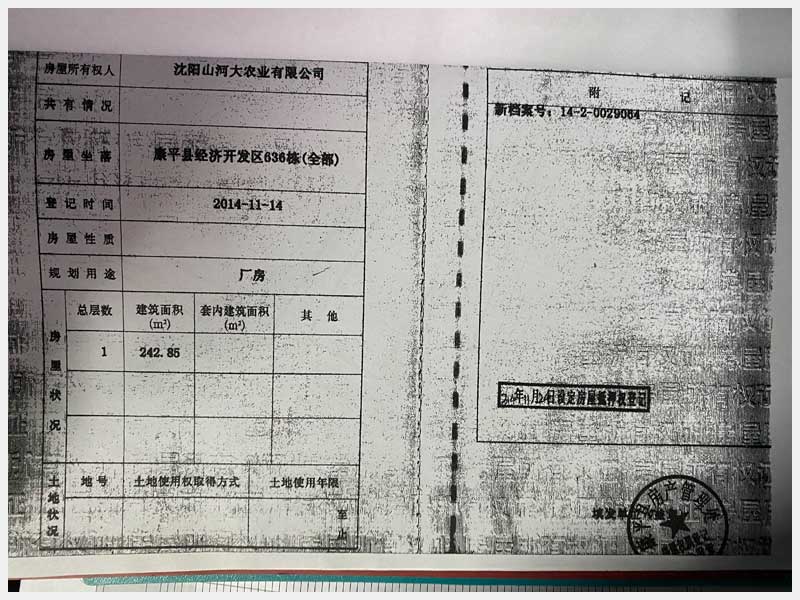 房屋所有权人 沈阳山河大农业有限公司
共有情况
房屋坐落 康平县经济开发区636栋(全部)
登记时间 2014-11-14
房屋性质
规划用途 厂房
房屋状况
总层数 建筑面积(m²) 套内建筑面积(m²) 其他
1 242.85
土地状况
地号 土地使用权取得方式 土地使用年限
至
止
附 记
新档案号：14-2-0029064
设定房屋抵押权登记